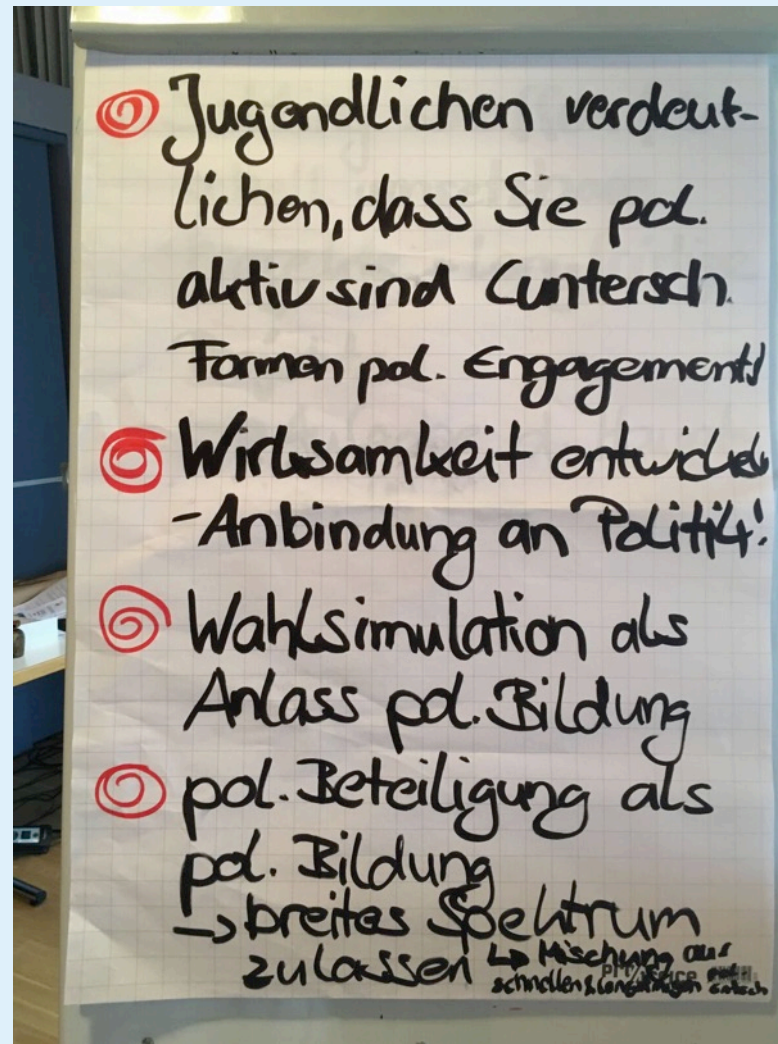 Jugendlichen verdeut-
lichen, dass Sie pol.
aktiv sind (untersch.
Formen pol. Engagements)
Wirksamkeit entwickeln
- Anbindung an Politik!
Wahlsimulation als
Anlass pol. Bildung
pol. Beteiligung als
pol. Bildung
→ breites Spektrum
zulassen ↳ Mischung aus
schnellen & langfristigen